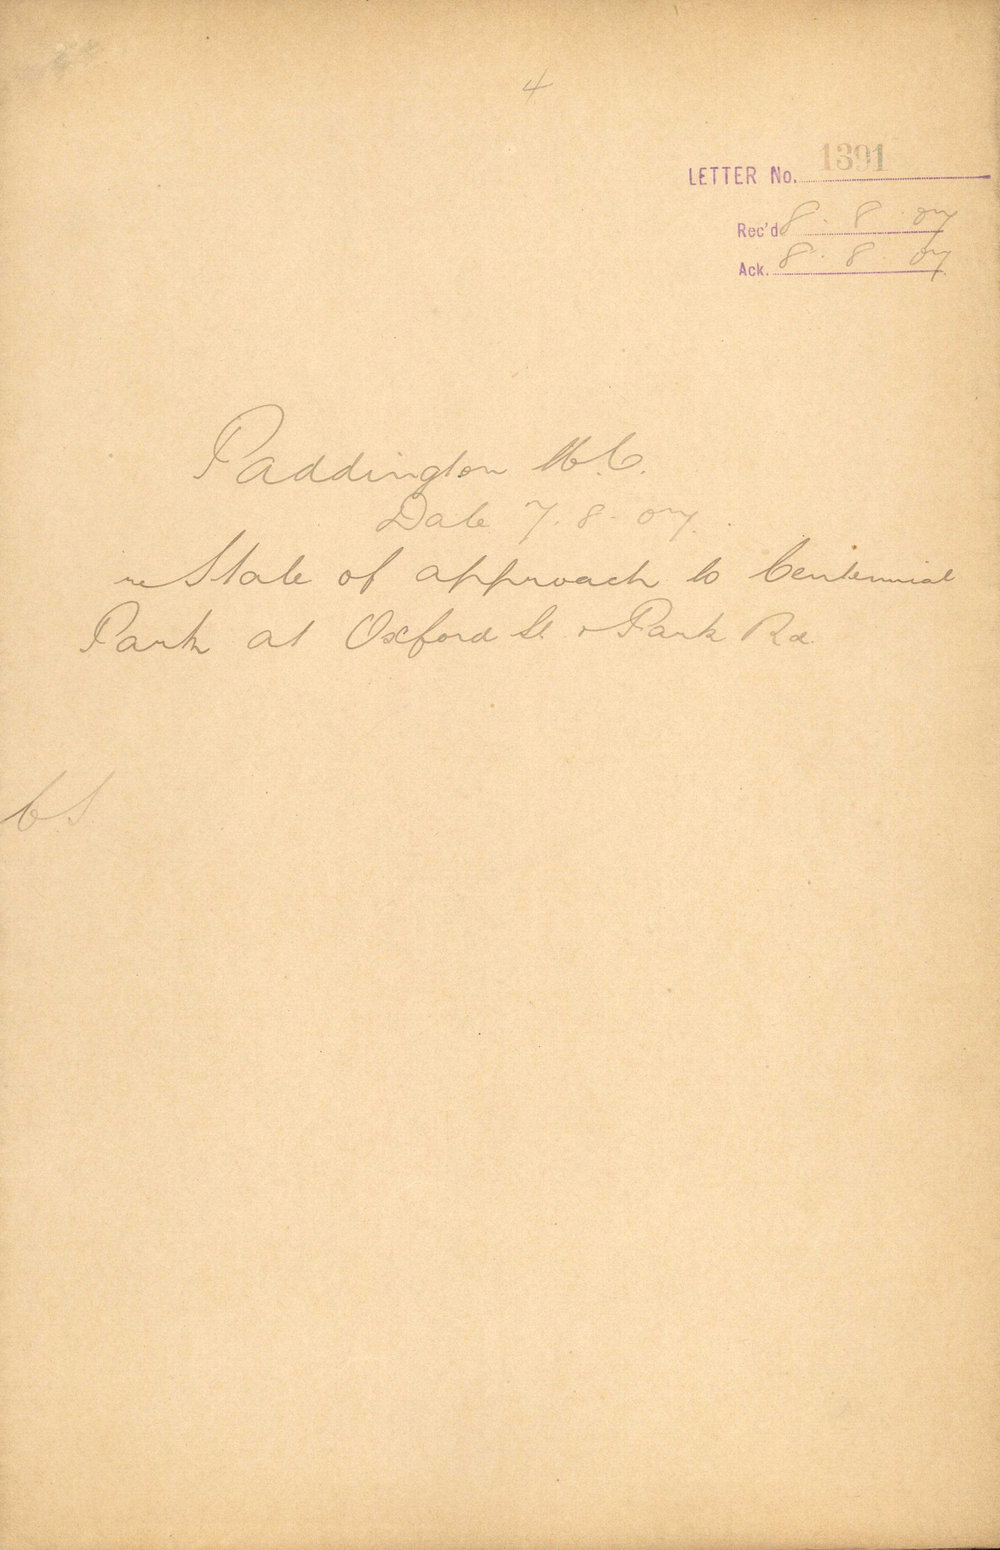 4
LETTER No. 1391
Rec'd 8. 8. 07
Ack. 8. 8. 07
Paddington M.C.
Date 7. 8. 07.
re State of approach to Centennial
Park at Oxford St. & Park Rd.
C.S.